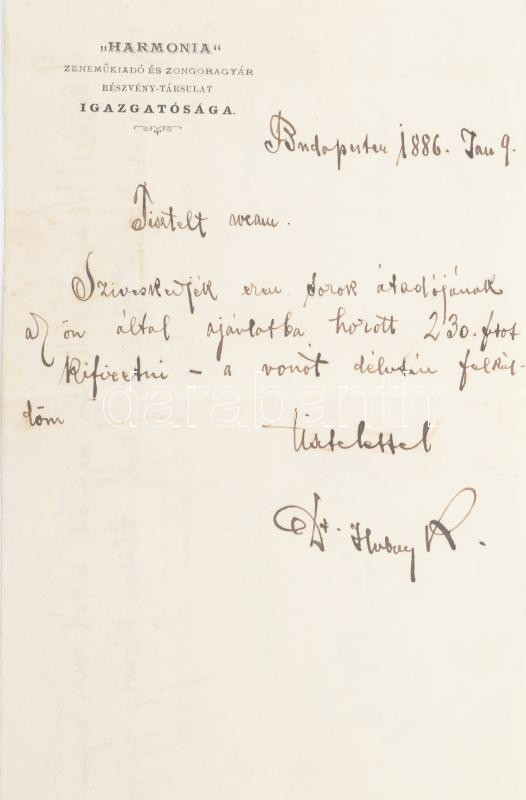 „HARMONIA“
ZENEMŰKIADÓ ÉS ZONGORAGYÁR
RÉSZVÉNY-TÁRSULAT
IGAZGATÓSÁGA.
Budapesten 1886. Jan 9.
Tisztelt uram.
Sziveskedjék ezen sorok átadójának
az ön által ajánlatba hozott 230. frtot
kifizetni – a vonót délután felkül-
döm
tisztelettel
Dr. Hubay K.
darabanth